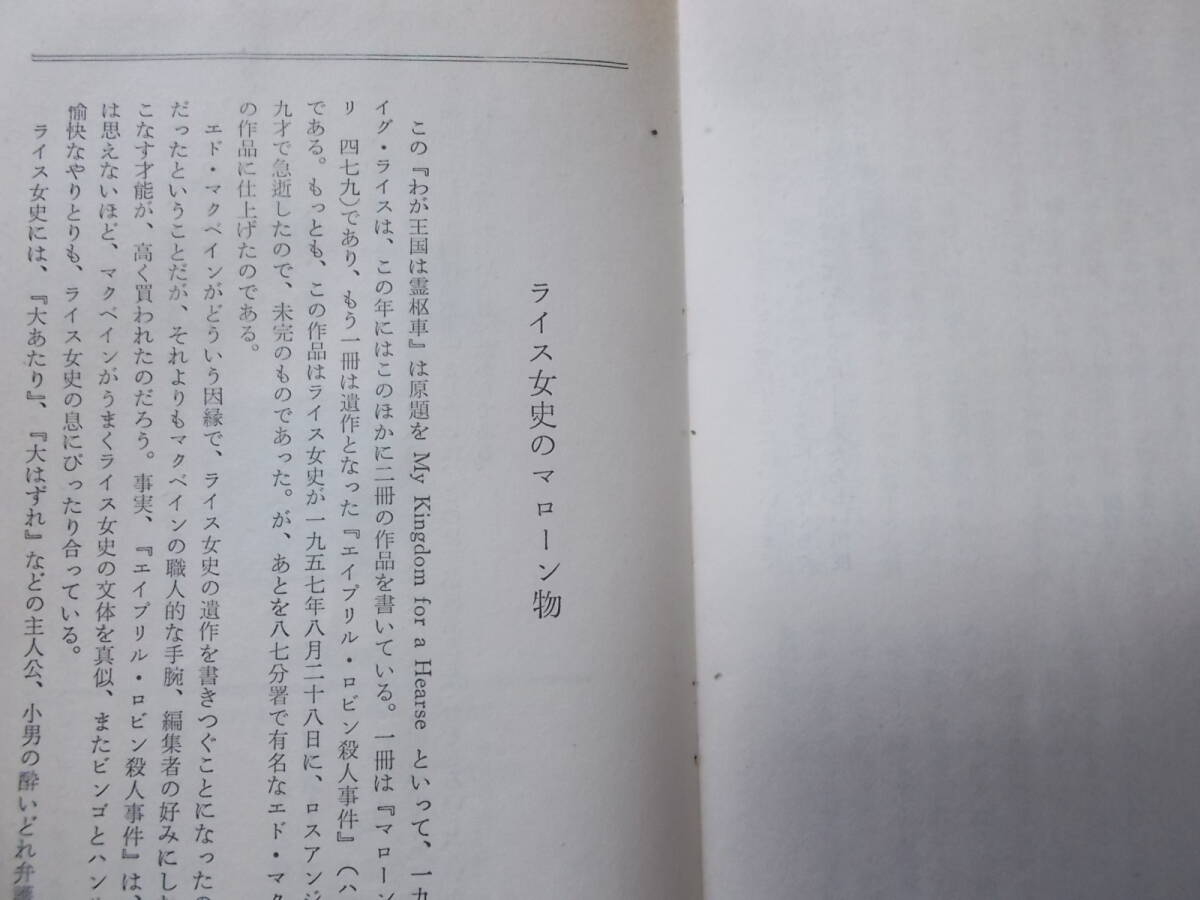 ライス女史のマローン物
この『わが王国は霊柩車』は原題を My Kingdom for a Hearse といって、一九
イグ・ライスは、この年にはこのほかに二冊の作品を書いている。一冊は『マローン
リ 四七九)であり、もう一冊は遺作となった『エイプリル・ロビン殺人事件』(ハ
である。もっとも、この作品はライス女史が一九五七年八月二十八日に、ロスアンジ
九才で急逝したので、未完のものであった。が、あとを八七分署で有名なエド・マク
の作品に仕上げたのである。
エド・マクベインがどういう因縁で、ライス女史の遺作を書きつぐことになったの
だったということだが、それよりもマクベインの職人的な手腕、編集者の好みにし
こなす才能が、高く買われたのだろう。事実、『エイプリル・ロビン殺人事件』は、
は思えないほど、マクベインがうまくライス女史の文体を真似、またビンゴとハン
愉快なやりとりも、ライス女史の息にぴったり合っている。
ライス女史には、『大あたり』、『大はずれ』などの主人公、小男の酔いどれ弁護